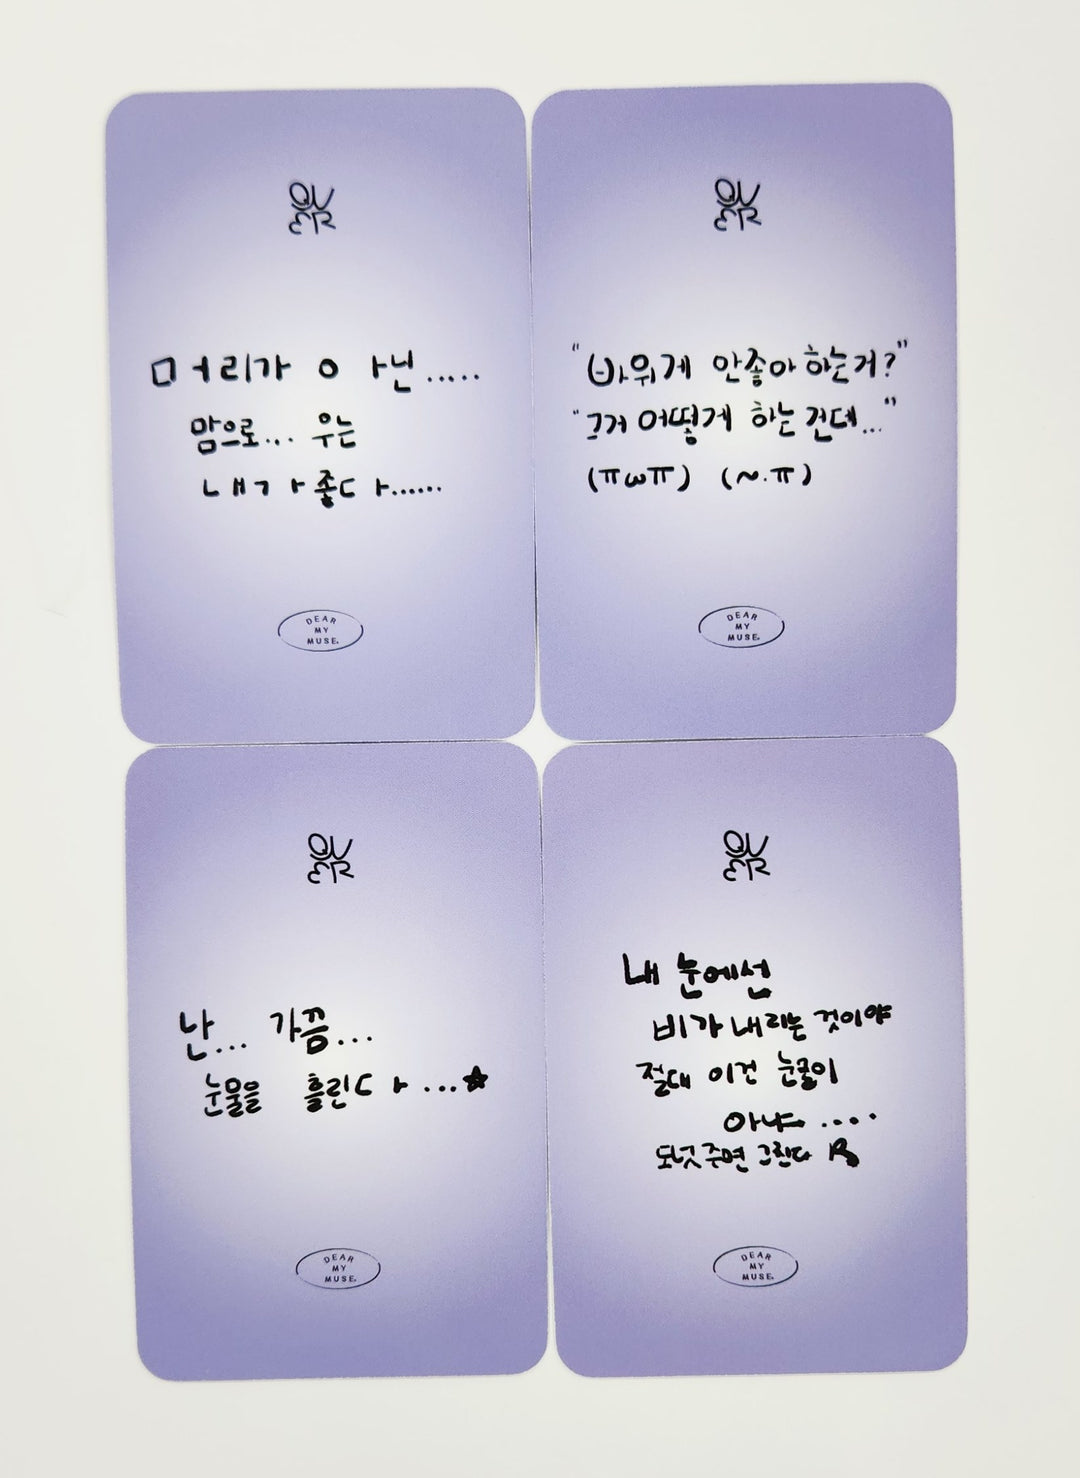 QV
ER
머리가 ㅇ ㅏ닌.....
맘으로... 우는
ㄴㅐㄱㅏ좋ㄷㅏ......
DEAR
MY
MUSE.
QV
ER
"바위게 안좋아하는거?"
"그거 어떻게 하는건데..."
(ㅠωㅠ) (~.ㅠ)
DEAR
MY
MUSE.
QV
ER
난... 가끔...
눈물을 흘린ㄷㅏ...★
DEAR
MY
MUSE.
QV
ER
내 눈에선
비가 내리는 것이야
절대 이건 눈물이
아냐....
도넛주면 그친다
DEAR
MY
MUSE.